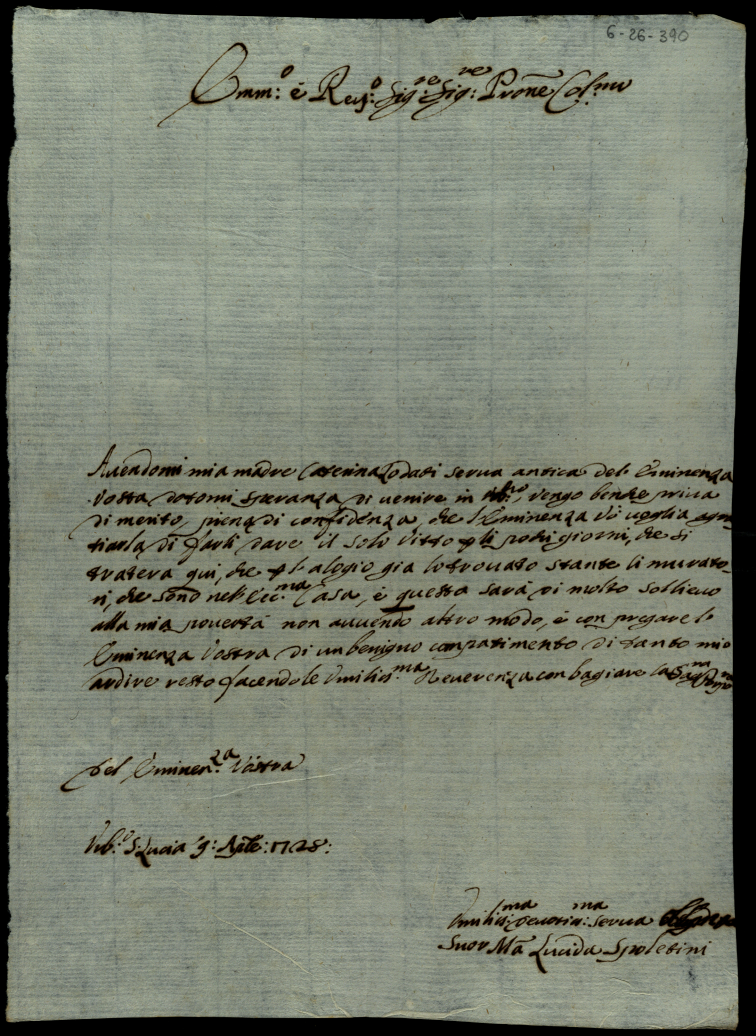 6-26-390
Emm:o è Reu:o Sig:re Sig:re Prone Col:mo
Auendomi mia madre Caterina serua antica del Eminenza
Vostra datomi speranza di uenire in vengo benche priua
di merito, piena di confidenza, che l'Eminenza Vã voglia
di farli dare il solo Vitto p li pochi giorni, che si
tratera qui, che p l'alogio gia lo trouato stante li murato-
ri, che sono nell'Ecc:ma Casa, è questa sarà di molto sollieuo
alla mia pouertà non auuendo altro modo, è con pregare l'
Eminenza Vostra di un benigno compatimento di tanto mio
ardire resto facendole Vmiliss:ma Reuerenza con bagiare la
Del Eminen:za Vostra
Vrb:o S: Lucia 9: 1728:
Vmilis:ma Deuotis:ma serua
Suor Mã Lucida Spoletini